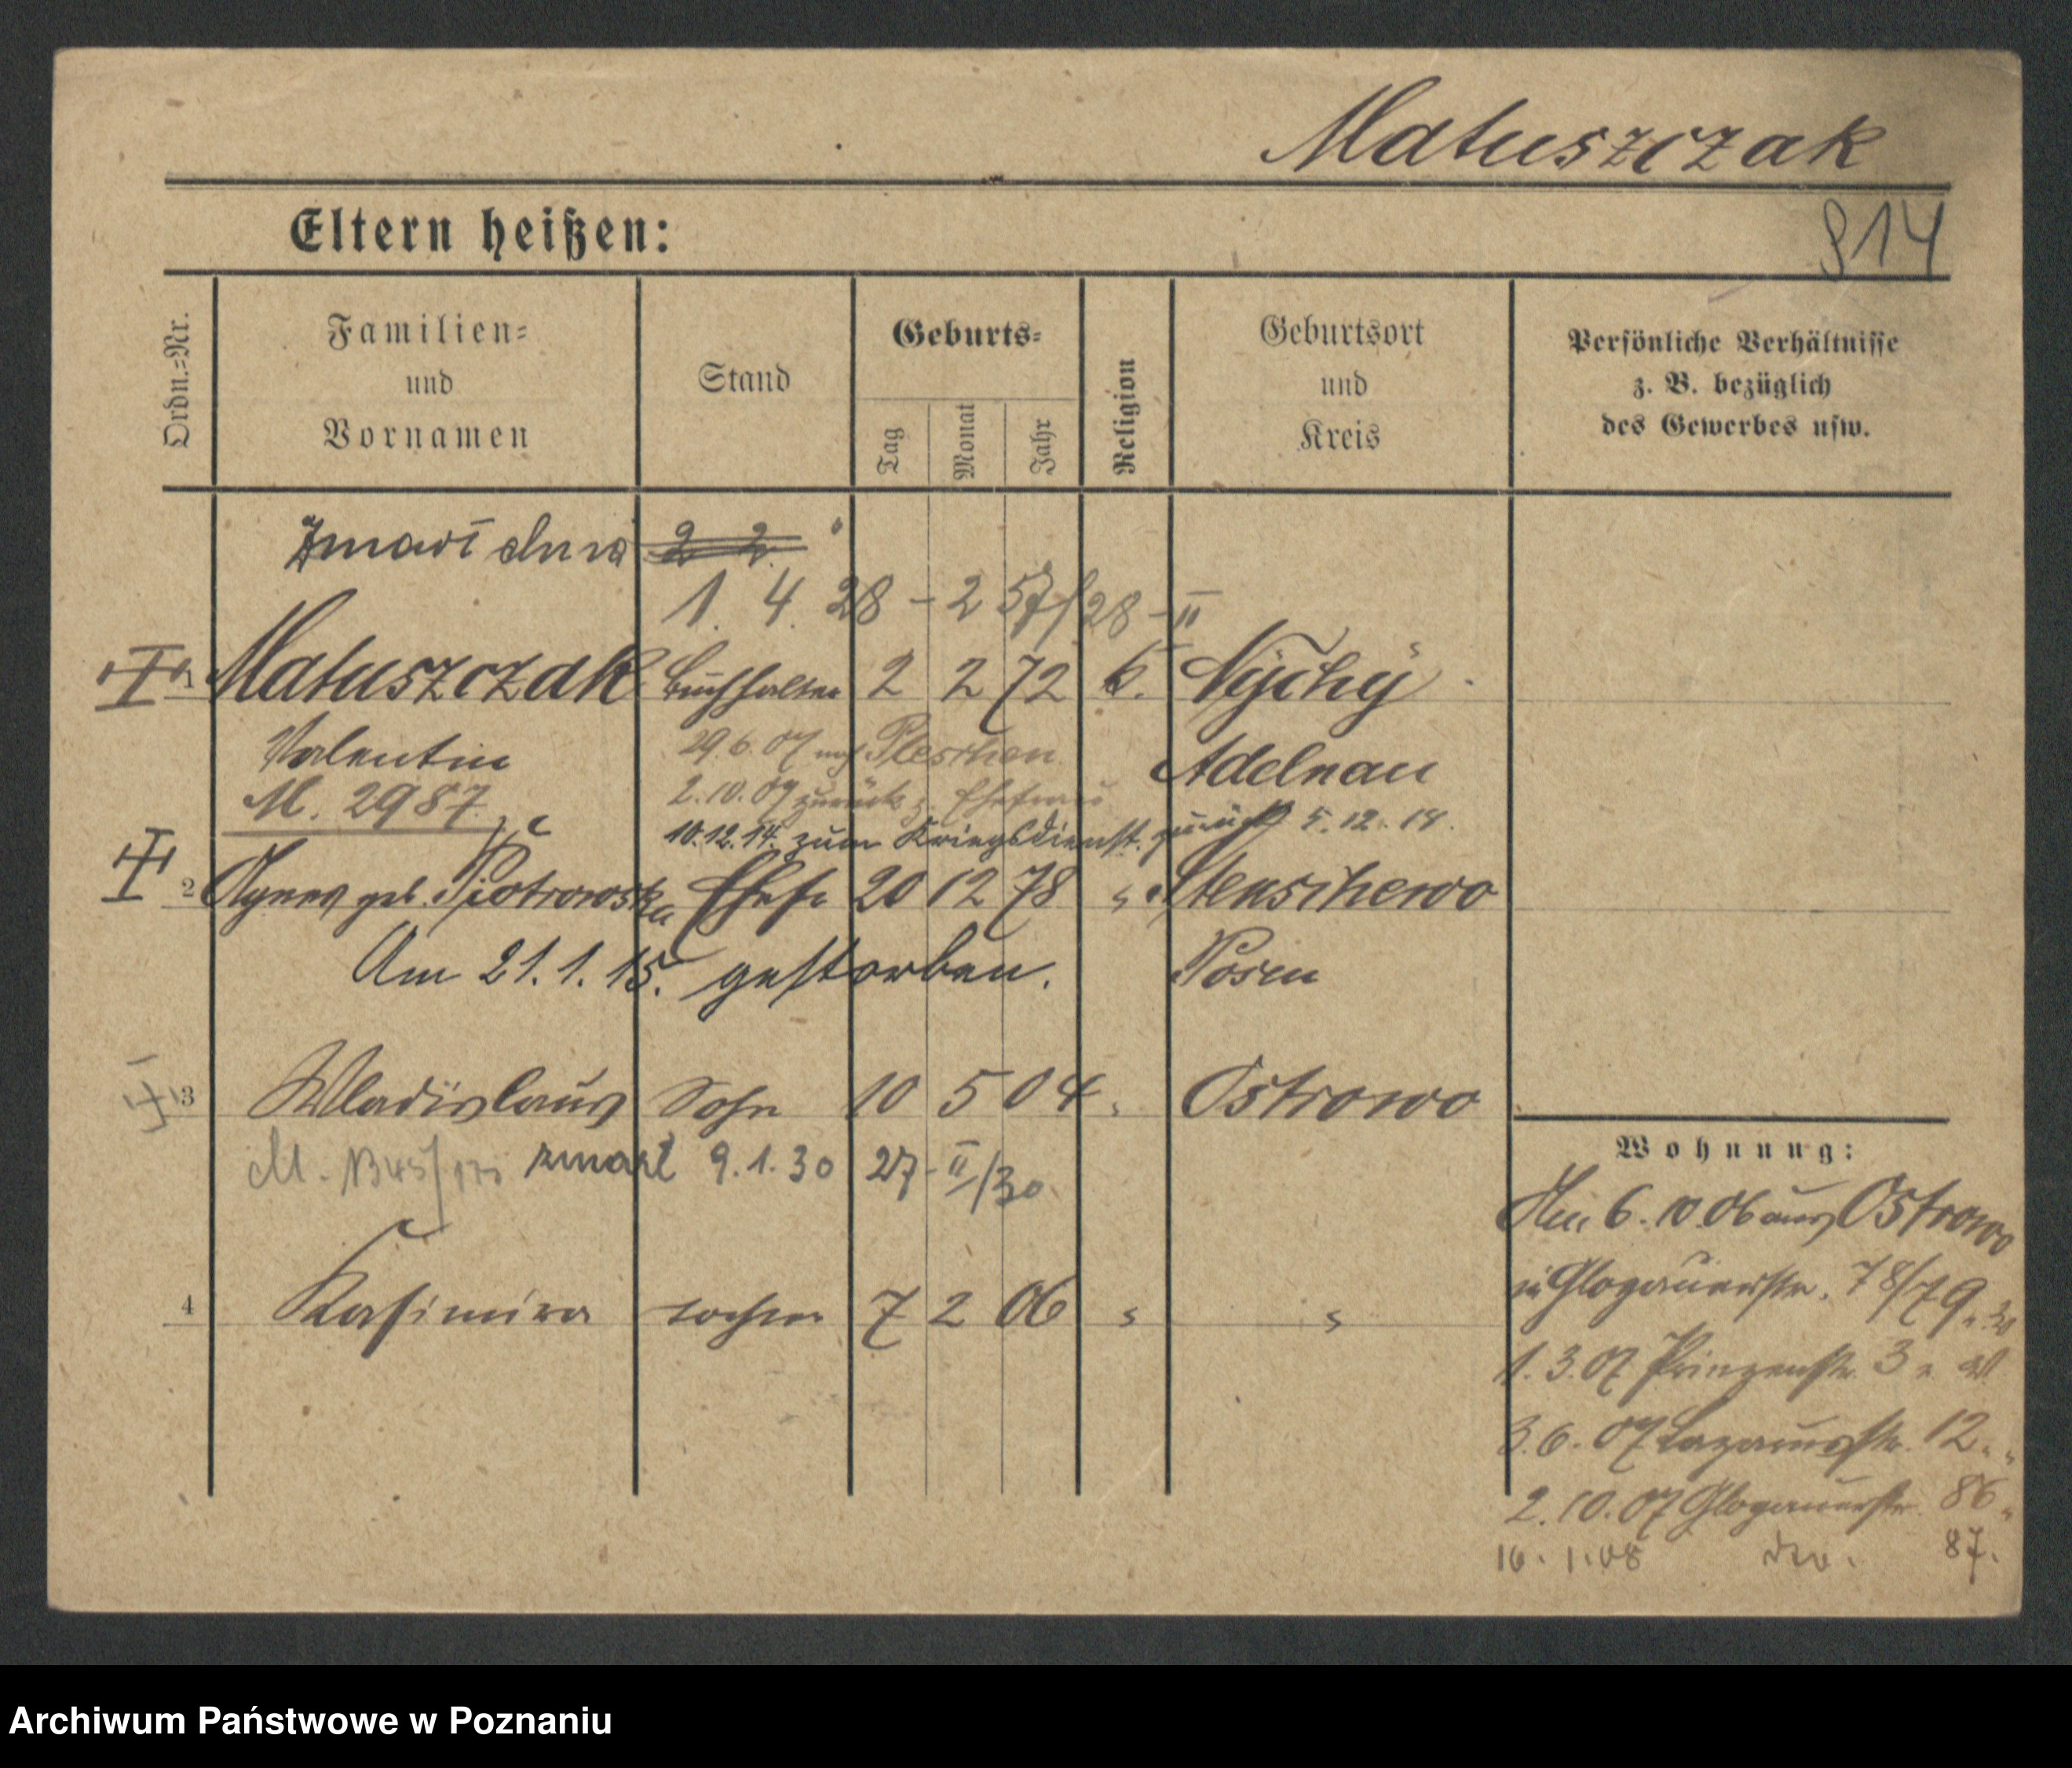 Matuszczak
Eltern heißen:
814
Ordn.=Nr.
Familien=
und
Vornamen
Stand
Geburts=
Tag
Monat
Jahr
Religion
Geburtsort
und
Kreis
Persönliche Verhältnisse
z. B. bezüglich
des Gewerbes usw.
Zmarł dnia 2 2
1. 4. 28 - 257/28 - II
1 Matuszczak Buchhalter 2 2 72 k. Wysocky
Valentin 29.6.07 nach Pleschen Adelnau
M. 2987 2.10.07 zurück z. Ehefrau
10.12.14. zum Kriegsdienst. zurück 5.12.18.
2 Agnes geb. Piotrowska Ehefr 20 12 78 " Stenschewo
Am 21.1.15. gestorben. Posen
3 Wladislaus Sohn 10 5 04 " Ostrowo
M. zmarł 9.1.30 27-II/30
4 Kasimira Tochter 7 2 06 " "
Wohnung:
6.10 06 aus Ostrowo
in Glogauerstr. 78/79
1.3.07 Prinzenstr. 3
3.6.07 Lazarusstr. 12
2.10.07 Glogauerstr. 86
16.1.08 87.
Archiwum Państwowe w Poznaniu